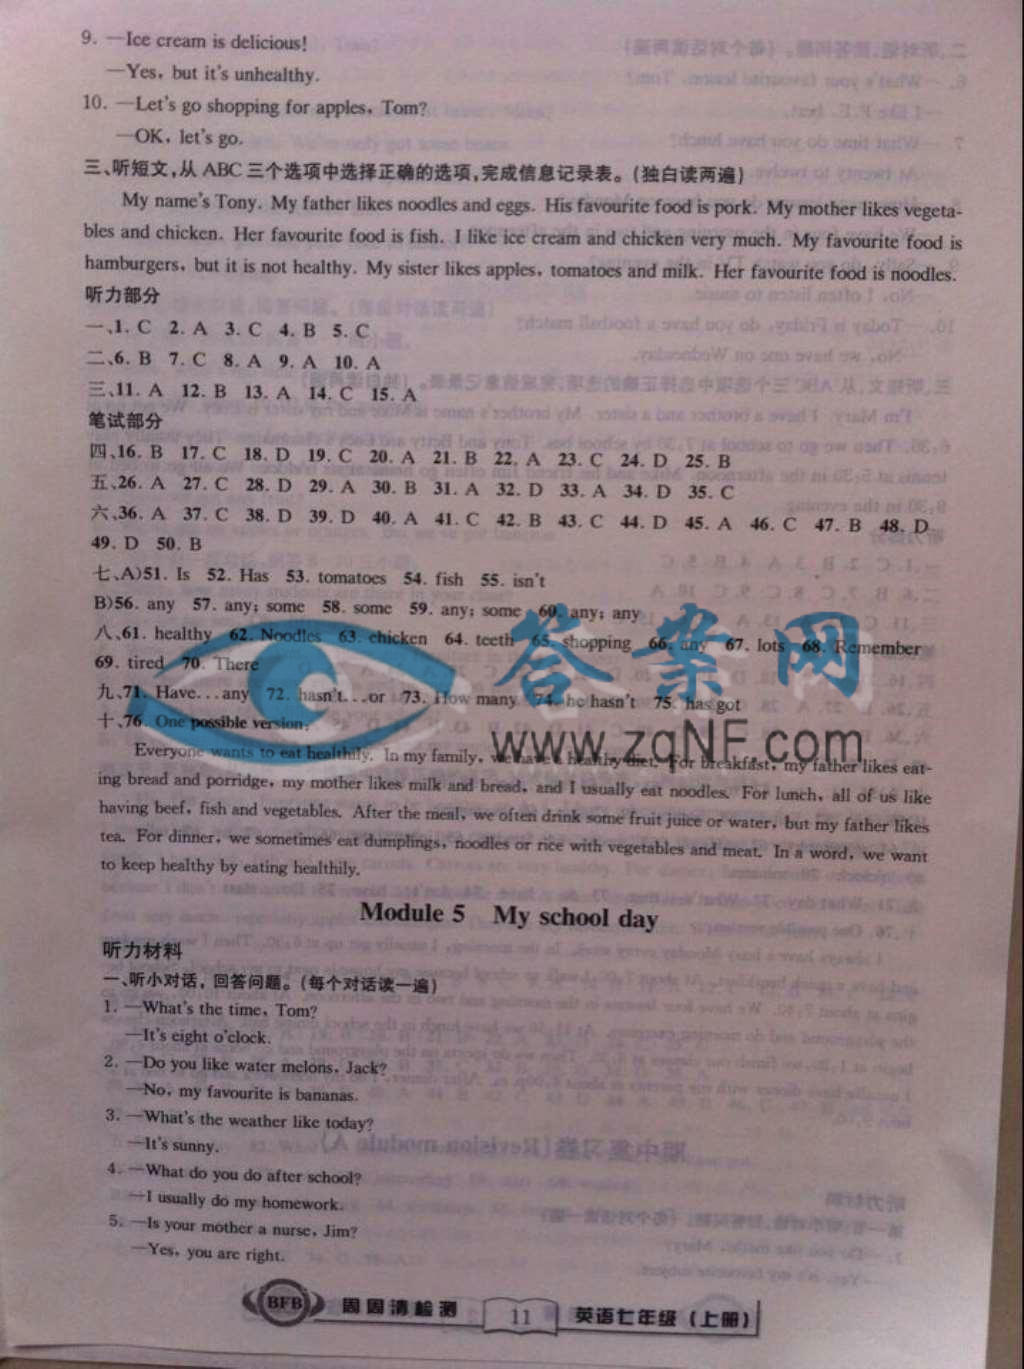 9. —Ice cream is delicious!
—Yes, but it's unhealthy.
10. —Let's go shopping for apples, Tom?
—OK, let's go.
三、听短文,从 ABC 三个选项中选择正确的选项,完成信息记录表。(独白读两遍)
My name's Tony. My father likes noodles and eggs. His favourite food is pork. My mother likes vegeta-
bles and chicken. Her favourite food is fish. I like ice cream and chicken very much. My favourite food is
hamburgers, but it is not healthy. My sister likes apples, tomatoes and milk. Her favourite food is noodles.
听力部分
一、1. C 2. A 3. C 4. B 5. C
二、6. B 7. C 8. A 9. A 10. A
三、11. A 12. B 13. A 14. C 15. A
笔试部分
四、16. B 17. C 18. D 19. C 20. A 21. B 22. A 23. C 24. D 25. B
五、26. A 27. C 28. D 29. A 30. B 31. A 32. D 33. A 34. D 35. C
六、36. A 37. C 38. D 39. D 40. A 41. C 42. B 43. C 44. D 45. A 46. C 47. B 48. D
49. D 50. B
七、A)51. Is 52. Has 53. tomatoes 54. fish 55. isn't
B)56. any 57. any; some 58. some 59. any; some 60. any; any
八、61. healthy 62. Noodles 63. chicken 64. teeth 65. shopping 66. any 67. lots 68. Remember
69. tired 70. There
九、71. Have...any 72. hasn't...or 73. How many 74. he hasn't 75. has got
十、76. One possible version:
Everyone wants to eat healthily. In my family, we have a healthy diet. For breakfast, my father likes eat-
ing bread and porridge, my mother likes milk and bread, and I usually eat noodles. For lunch, all of us like
having beef, fish and vegetables. After the meal, we often drink some fruit juice or water, but my father likes
tea. For dinner, we sometimes eat dumplings, noodles or rice with vegetables and meat. In a word, we want
to keep healthy by eating healthily.
答案网
www.zqNF.com
Module 5 My school day
听力材料
一、听小对话,回答问题。(每个对话读一遍)
1. —What's the time, Tom?
—It's eight o'clock.
2. —Do you like water melons, Jack?
—No, my favourite is bananas.
3. —What's the weather like today?
—It's sunny.
4. —What do you do after school?
—I usually do my homework.
5. —Is your mother a nurse, Jim?
—Yes, you are right.
BFB 周周清检测 11 英语七年级(上册)